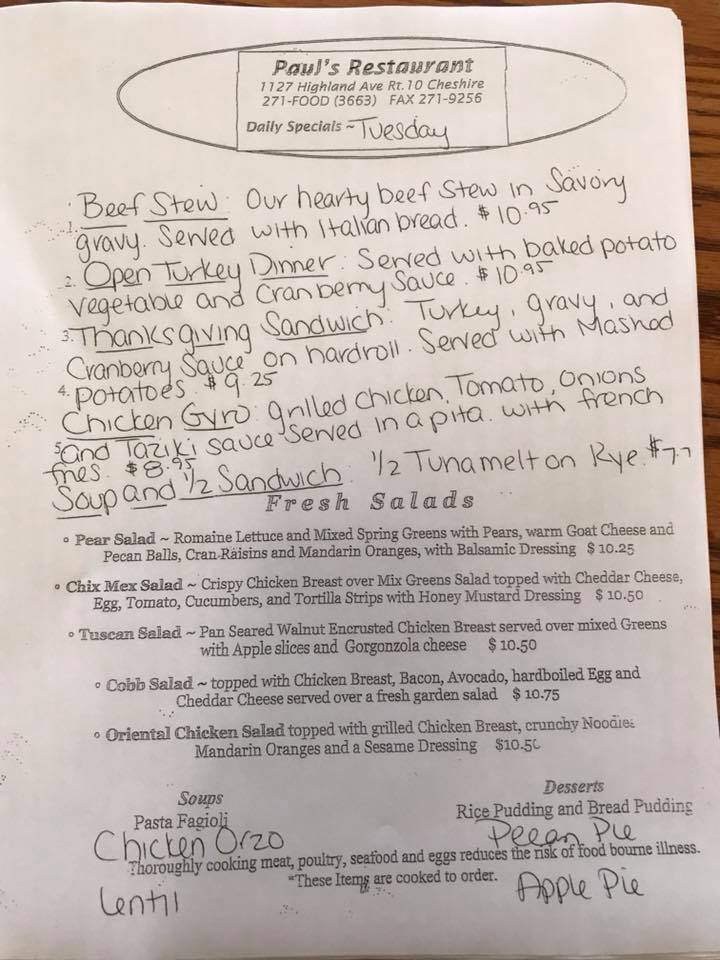 Paul's Restaurant
1127 Highland Ave Rt.10 Cheshire
271-FOOD (3663) FAX 271-9256
Daily Specials ~ Tuesday
1. Beef Stew: Our hearty beef Stew in Savory
gravy. Served with Italian bread. $10.95
2. Open Turkey Dinner: Served with baked potato
vegetable and Cranberry Sauce. $10.95
3. Thanksgiving Sandwich: Turkey, gravy, and
Cranberry Sauce on hardroll. Served with Mashed
4. potatoes $9.25
Chicken Gyro: grilled chicken, Tomato, Onions
5. and Taziki sauce Served in a pita. with french
fries. $8.95
Soup and 1/2 Sandwich: 1/2 Tunamelt on Rye.
Fresh Salads
• Pear Salad ~ Romaine Lettuce and Mixed Spring Greens with Pears, warm Goat Cheese and
Pecan Balls, Cran-Raisins and Mandarin Oranges, with Balsamic Dressing $10.25
• Chix Mex Salad ~ Crispy Chicken Breast over Mix Greens Salad topped with Cheddar Cheese,
Egg, Tomato, Cucumbers, and Tortilla Strips with Honey Mustard Dressing $10.50
• Tuscan Salad ~ Pan Seared Walnut Encrusted Chicken Breast served over mixed Greens
with Apple slices and Gorgonzola cheese $10.50
• Cobb Salad ~ topped with Chicken Breast, Bacon, Avocado, hardboiled Egg and
Cheddar Cheese served over a fresh garden salad $10.75
• Oriental Chicken Salad topped with grilled Chicken Breast, crunchy Noodles
Mandarin Oranges and a Sesame Dressing $10.50
Soups
Pasta Fagioli
Chicken Orzo
Lentil
Desserts
Rice Pudding and Bread Pudding
Pecan Pie
Apple Pie
Thoroughly cooking meat, poultry, seafood and eggs reduces the risk of food bourne illness.
*These Items are cooked to order.